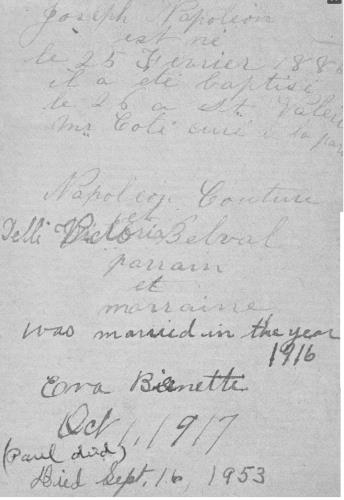 Joseph Napoleon
est né
le 25 Fevrier 188
il a été baptisé
le 26 a St. Valeri
Mr. Coté curé de la par
Napoleon Couture
et
Victoria Belval
parrain
et
marraine
was married in the year
1916
Enva Benette
Oct 1, 1917
(Paul died)
Died Sept. 16, 1953